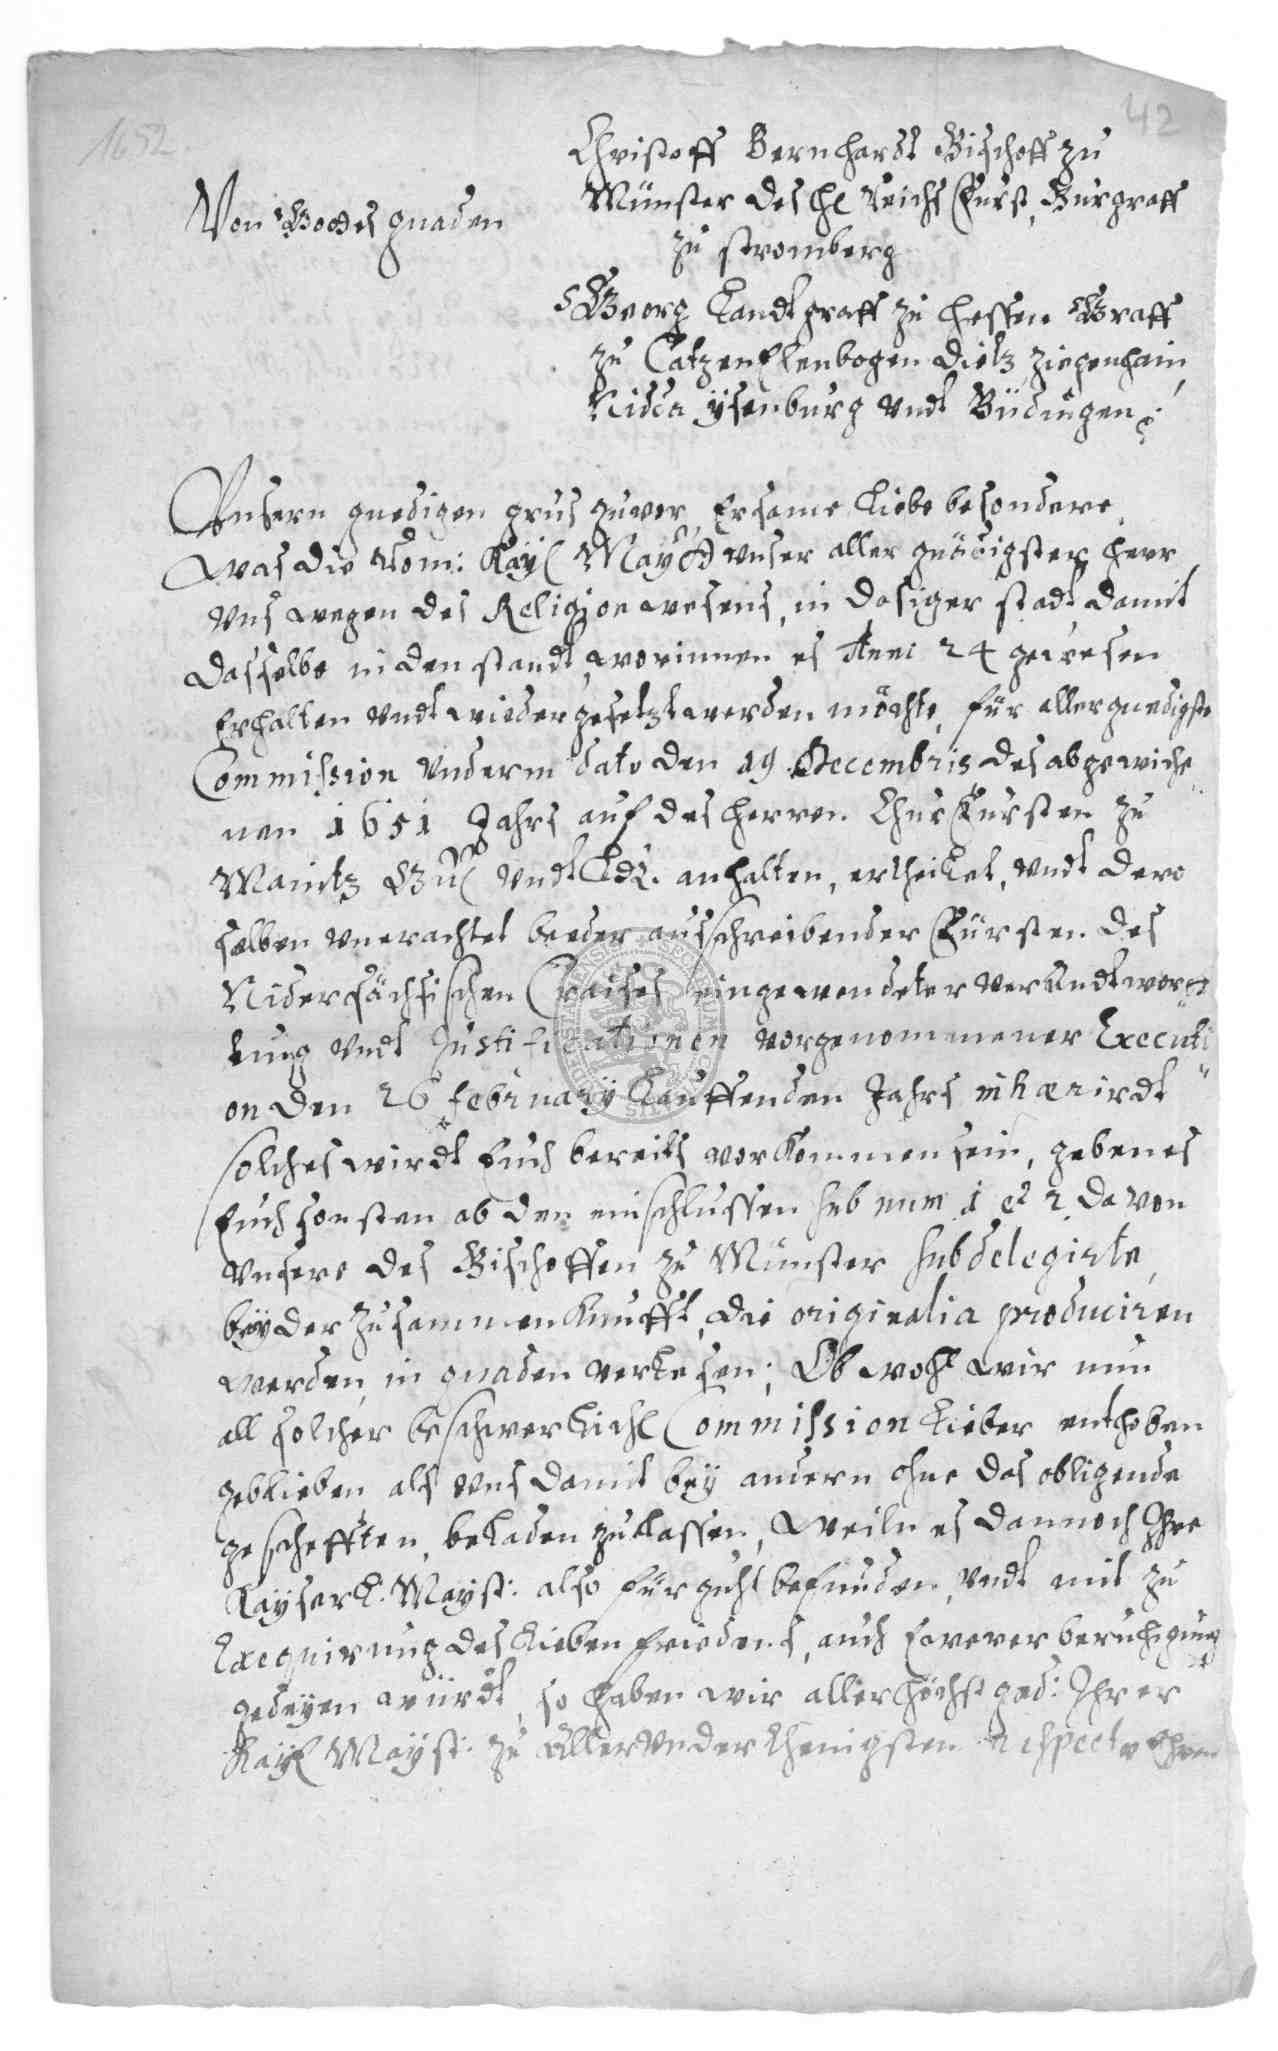 1652
42
Christoff Bernhardt Bischoff zu
Münster des hl Reichs Fürst, Burgraff
zu stromberg
Von Gottes gnaden
Georg Landtgraff zu Hessen Graff
zu Catzenelenbogen Dietz Ziegenhain
Nidda ÿsenburg vndt Büdingen
Vnsern gnedigen grus zuvor, Ersame Liebe besondere,
Was die Röm: Kaÿl Maÿtt vnser aller gnädigster herr
vns wegen des Religion wesens, in dasiger stadt, damit
dasselbe in den standt, worinnen es Anni 24 gewesen
Erhalten vndt wieder gesetzt werden möchte, für allergnedigste
Commission vnderm dato den 19 Decembris des abgewiche,,
nen 1651 Jahrs auf des herren ChurFürsten zu
Maintz Gnl vndt Ld. anhalten, ertheilet, vndt dero
selben vnerachtet beeder ausschreibender Fürsten des
Nidersächsischen Craises eingewendeter verandtwor
tung vndt Justificationen vorgenommener Executi
on den 26 februarÿ Lauffenden Jahrs inhærirdt
solches wirdt Euch bereits vorkommen sein, geben es
Euch sonsten ab den einschlussen sub num 1 et 2 davon
vnsere des Bischoffen zu Münster subdelegirte
beÿ der Zusammenkunfft, die originalia produciren
werden, in gnaden verlesen; Ob wohl wir nun
all solcher beschwerlichl Commission Lieber enthoben
geblieben, als vns damit beÿ andern ohne das obligende
geschefften, beladen zu lassen, Weiln es dannoch Ihre
Kaÿserl. Maÿst: also für guht befunden, vndt mit zu
Exequirung des Lieben friedens, auch Ewerer beruhigung
gedeÿen würdt, so haben wir allerhöchst gedr: Ihrer
Kaÿl Maÿst: zu Allervnderthenigsten respect, Ihren